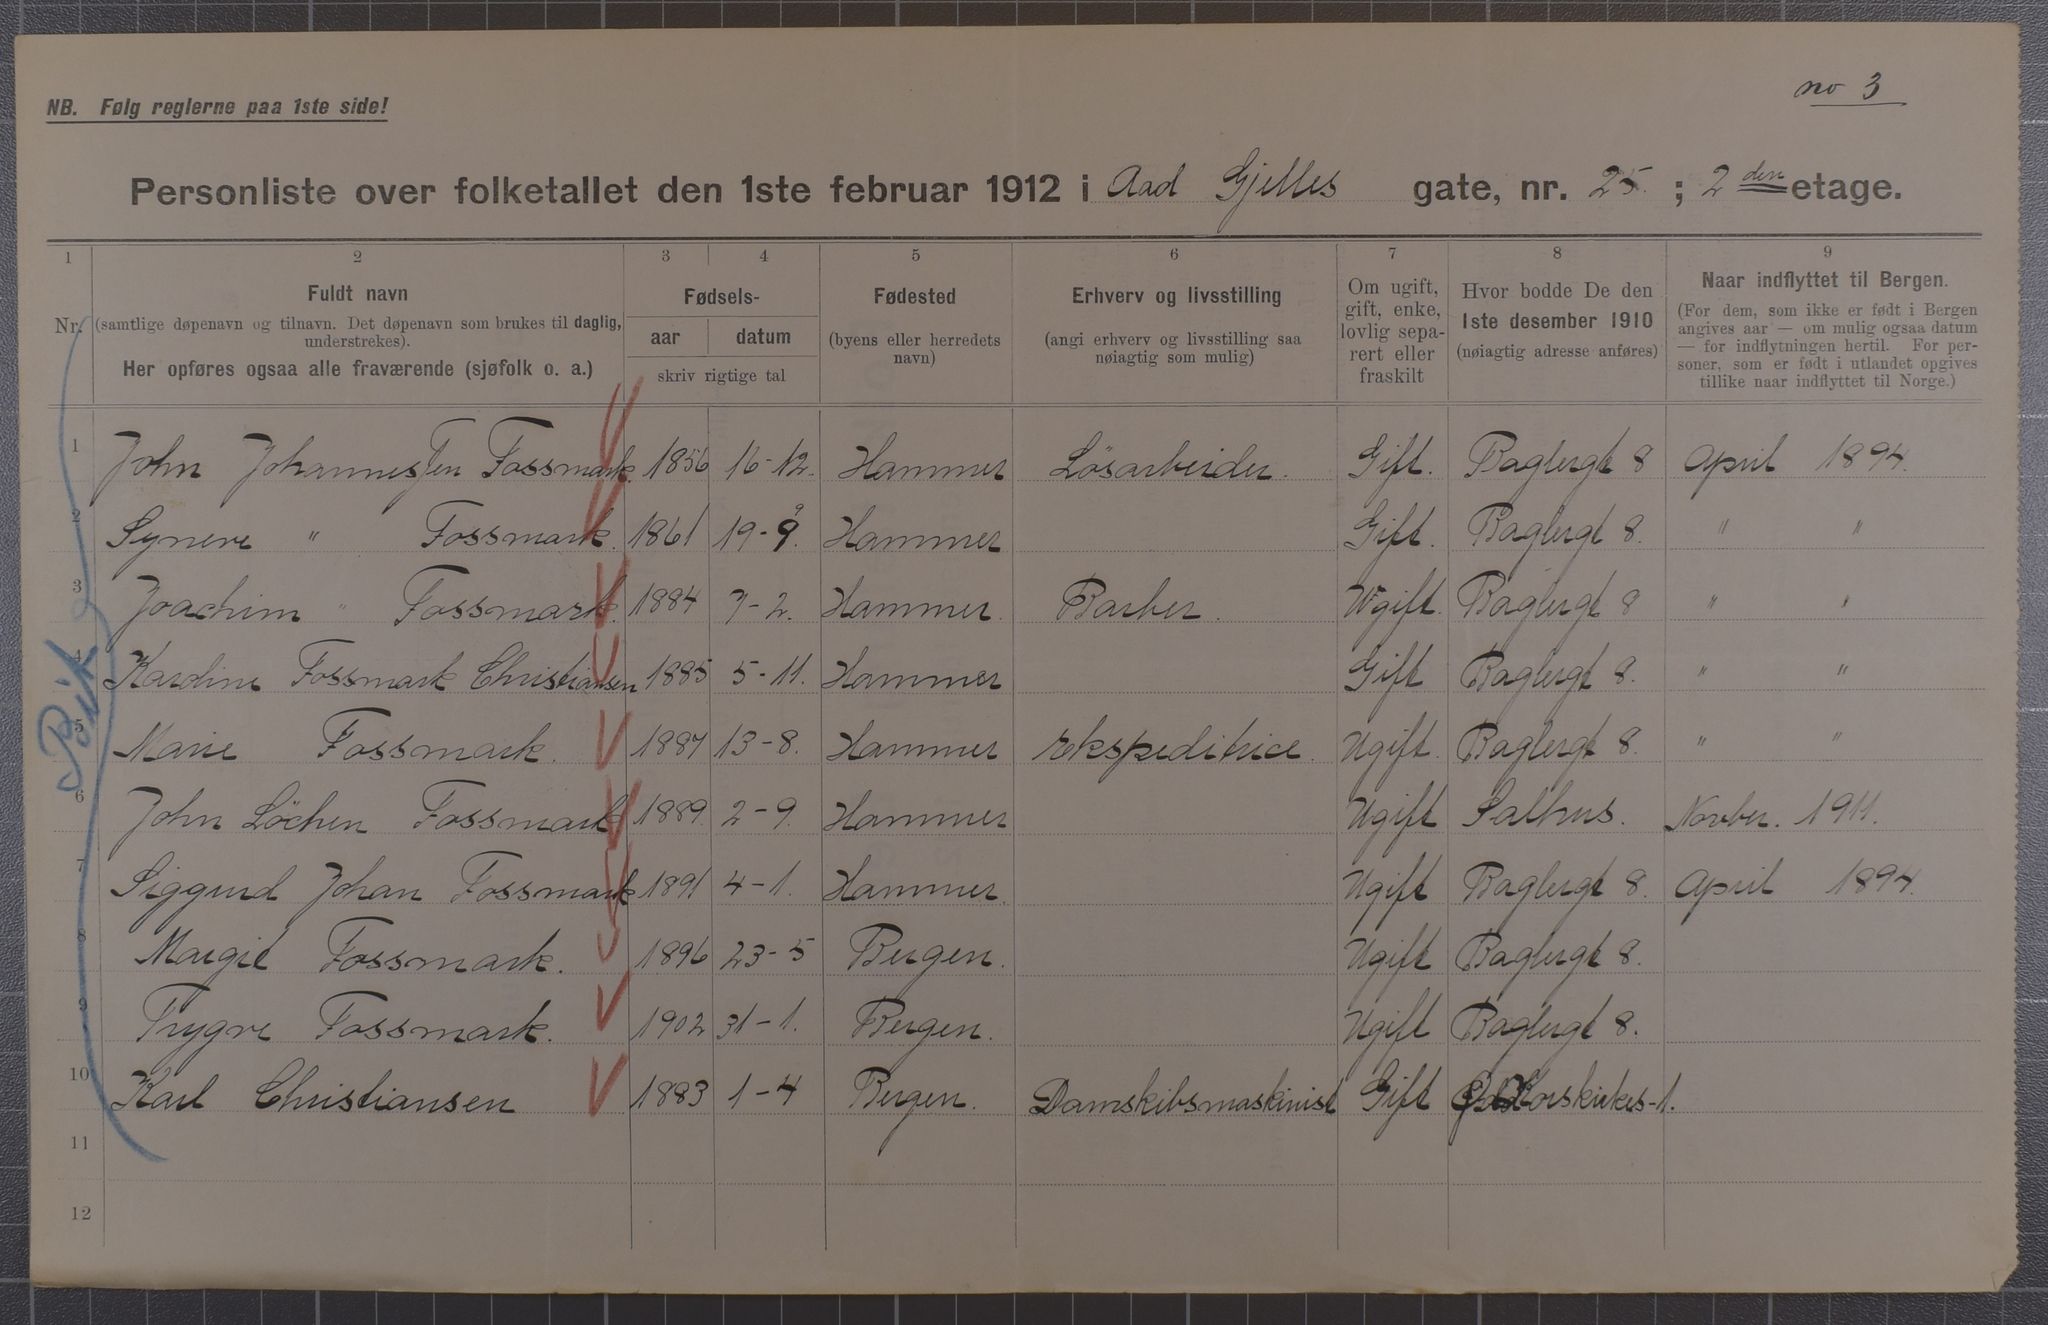 no 3
NB. Følg reglerne paa 1ste side!
Personliste over folketallet den 1ste februar 1912 i Aad Gjelles gate, nr. 25. ; 2 den etage.
1 2 3 4 5 6 7 8 9
Nr.
Fuldt navn
(samtlige døpenavn og tilnavn. Det døpenavn som brukes til daglig, understrekes).
Her opføres ogsaa alle fraværende (sjøfolk o. a.)
Fødsels-
aar datum
skriv rigtige tal
Fødested
(byens eller herredets navn)
Erhverv og livsstilling
(angi erhverv og livsstilling saa nøiagtig som mulig)
Om ugift, gift, enke, lovlig separert eller fraskilt
Hvor bodde De den 1ste desember 1910
(nøiagtig adresse anføres)
Naar indflyttet til Bergen.
(For dem, som ikke er født i Bergen angives aar — om mulig ogsaa datum — for indflytningen hertil. For personer, som er født i utlandet opgives tillike naar indflyttet til Norge.)
1 John Johannessen Fossmark. 1856 16-12. Hammer Lösarbeider. Gift. Baglergt 8 April 1894.
2 Syneve " Fossmark. 1861 19-9. Hammer Gift. Baglergt 8. " "
3 Joachim " Fossmark. 1884 7-2. Hammer. Barber. Ugift. Baglergt 8 " "
4 Karoline Fossmark Christiansen 1885 5-11. Hammer Gift Baglergt 8. " "
5 Marie Fossmark. 1887 13-8. Hammer ekspeditrice. Ugift. Baglergt 8. " "
6 John Löchen Fossmark 1889. 2-9 Hammer Ugift Salhus. Novber. 1911.
7 Siggurd Johan Fossmark 1891 4-1. Hammer. Ugift Baglergt 8. April 1894.
8 Margit Fossmark. 1896 23-5 Bergen. Ugift Baglergt 8.
9 Trygve Fossmark. 1902 31-1. Bergen. Ugift Baglergt 8.
10 Karl Christiansen 1883 1-4 Bergen. Damskibsmaskinist Gift Korskirkes-1.
11
12